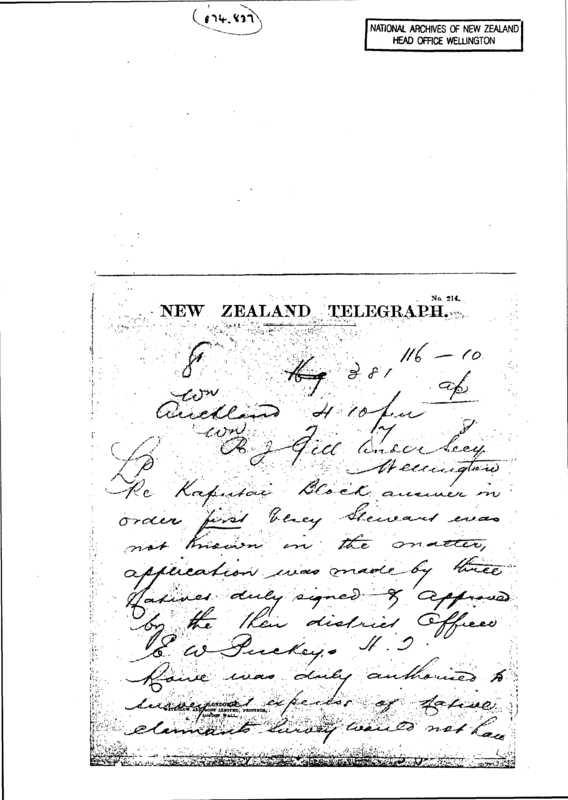 874.837
NATIONAL ARCHIVES OF NEW ZEALAND
HEAD OFFICE WELLINGTON
No. 214.
NEW ZEALAND TELEGRAPH.
381 116 – 10
Wn
Auckland 4.10 pm
Wn
R J Gill Under Secy
Wellington
Re Kaputai Block answer in
order first Stewart was
not known in the matter,
application was made by three
Natives duly signed & approved
by the then district Officer
E W Puckey
Rowe was duly authorised to
survey at expense of Native
claimants survey would not have